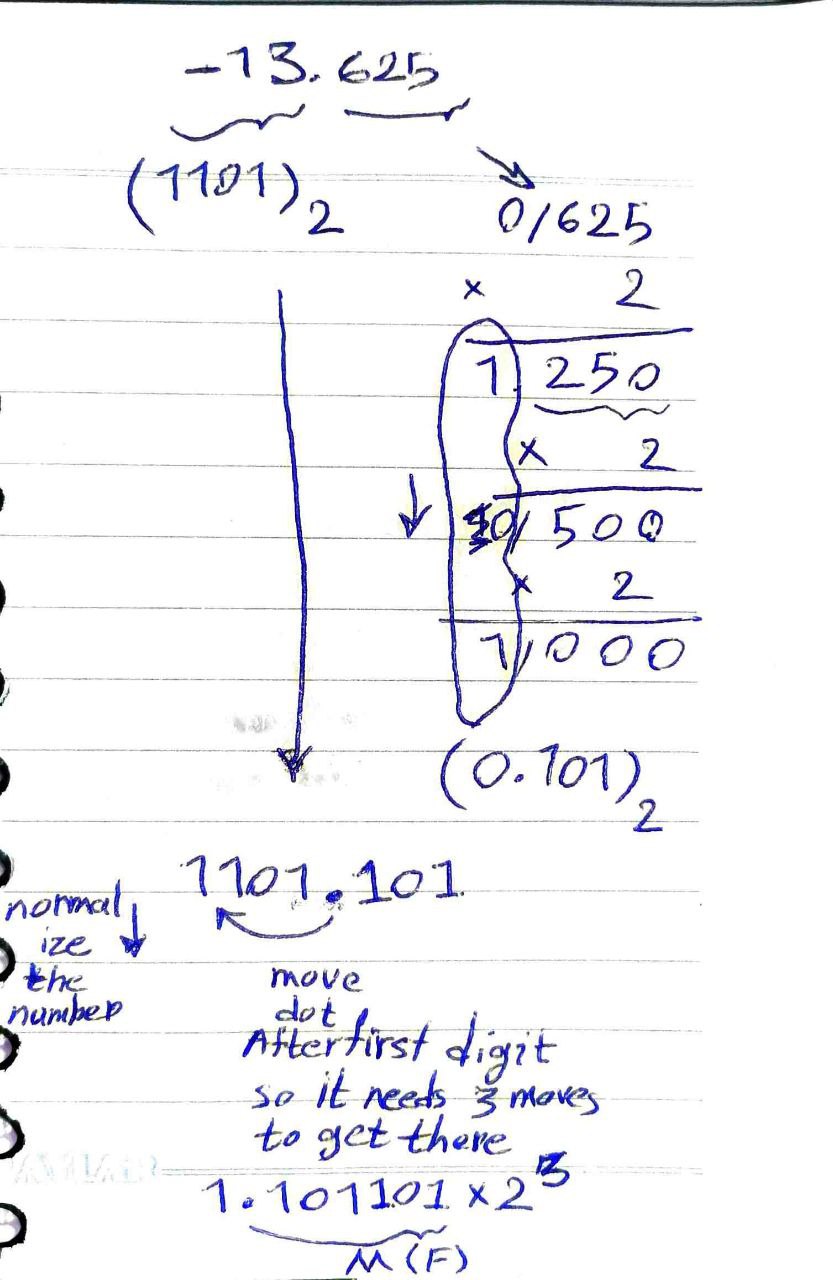 -13.625
(1101)2
0/625
× 2
1.250
× 2
0/500
× 2
1/000
(0.101)2
1101.101
normal
ize
the
number
move
dot
After first digit
so it needs 3 moves
to get there
1.101101 × 2^3
M(F)